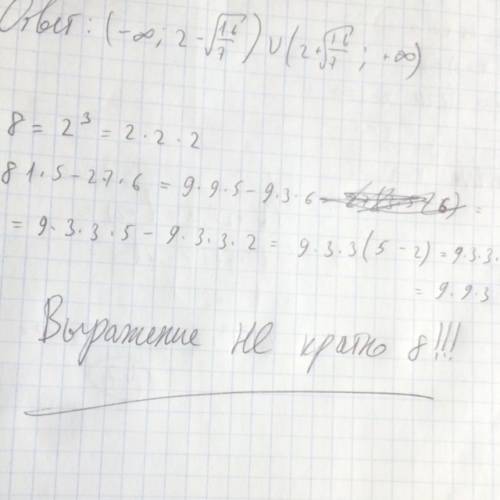 Ответ: (-∞; 2-√16/7) ∪ (2+√16/7; +∞)
8 = 2³ = 2·2·2
81·5-27·6 = 9·9·5-9·3·6 =
= 9·3·3·5 - 9·3·3·2 = 9·3·3(5-2) = 9·3·3·
= 9·9·3
Выражение не кратно 8!!!